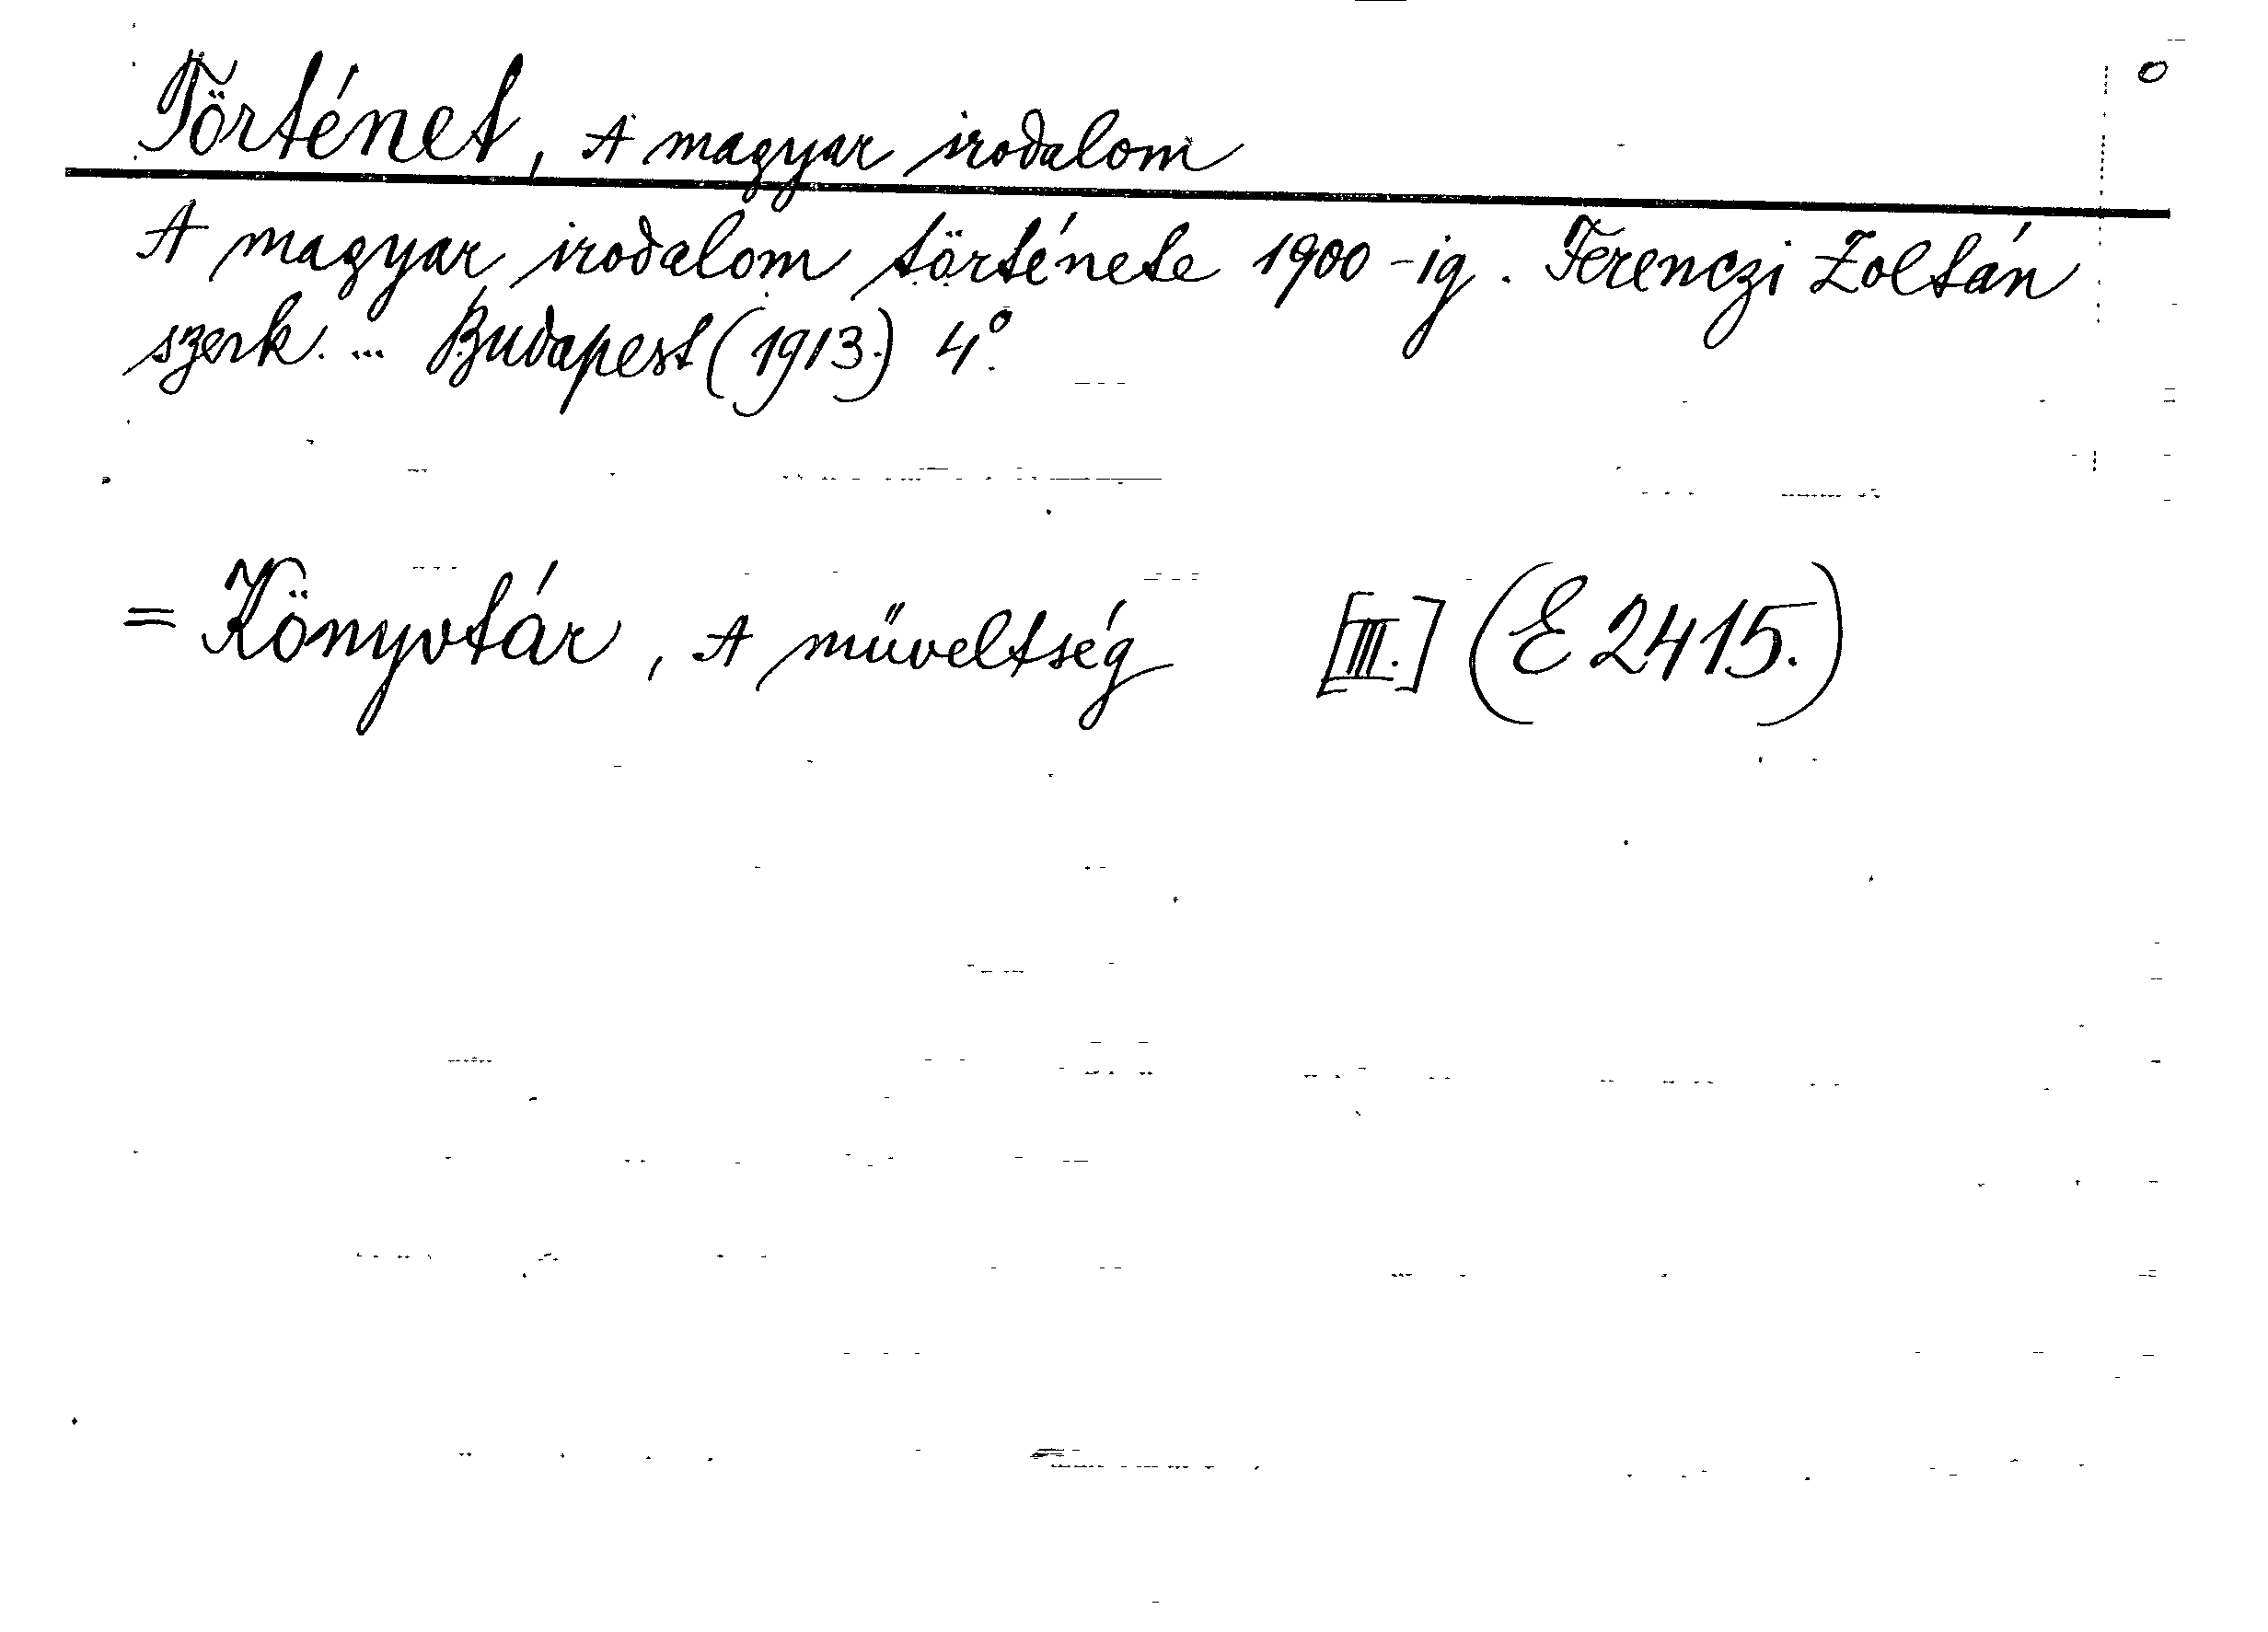 Történet, A magyar irodalom
A magyar irodalom története 1900-ig. Ferenczi Zoltán
szerk. ... Budapest (1913.) 4°.
= Könyvtár, A műveltség [III.] (E 2415.)